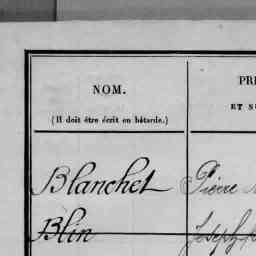 NOM.
PRÉ
(Il doit être écrit en bâtarde.)
ET S
Blanchet Pierre
Blin Joseph